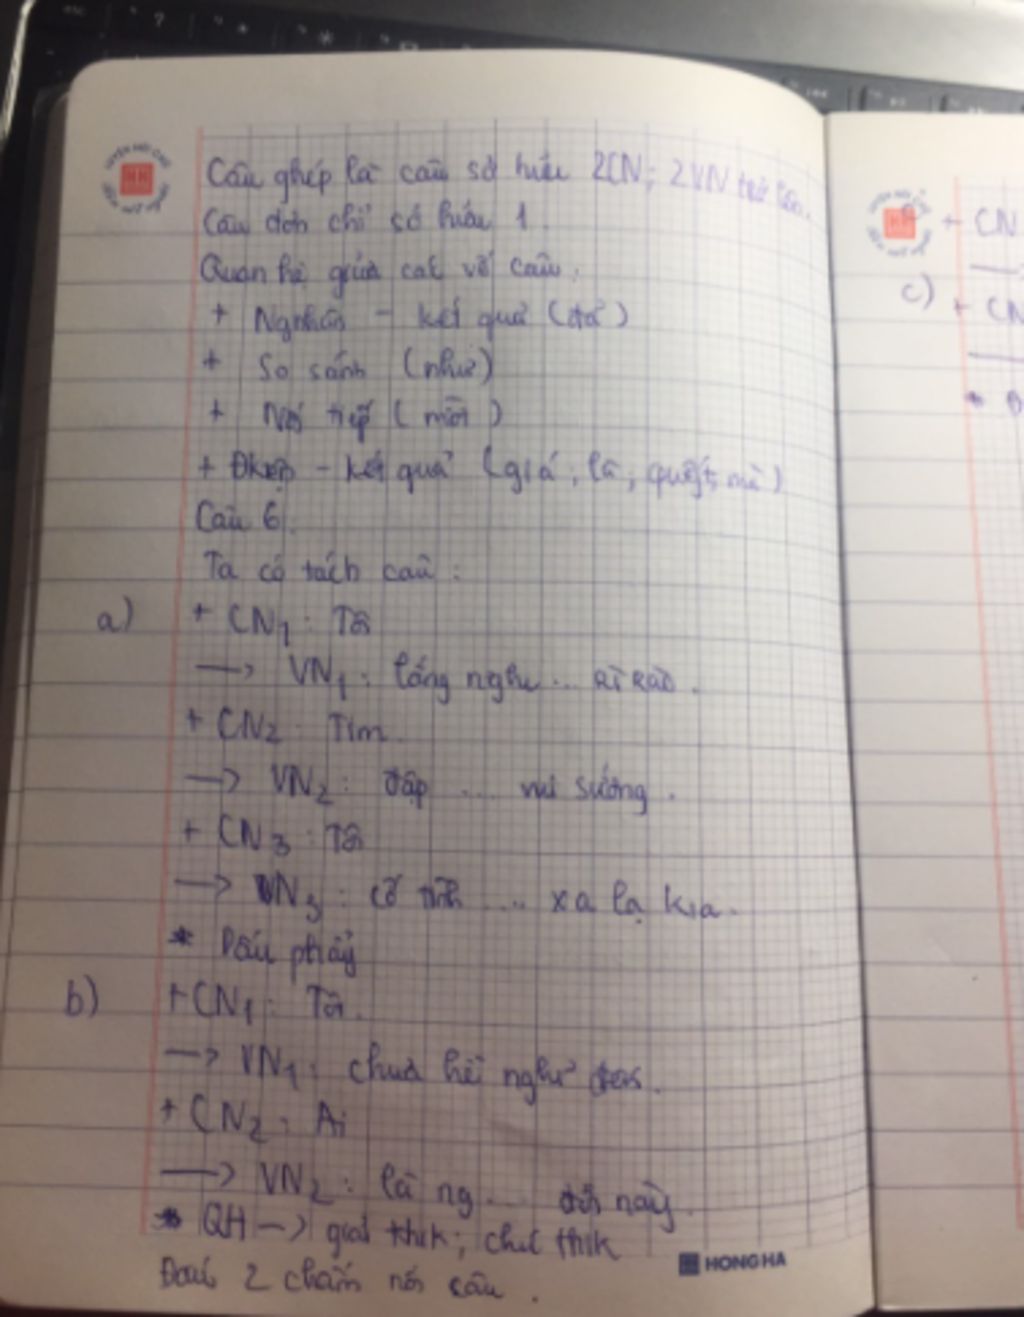 Câu ghép là câu sở hữu 2CN; 2VN trở lên.
Câu đơn chỉ sở hữu 1.
Quan hệ giữa các vế câu.
+ Nguyên - kết quả (để)
+ So sánh (như)
+ Nối tiếp (mời)
+ Đkiện - kết quả (giá, là,
Câu 6.
Ta có tách câu:
a) + CN1: Tôi
→ VN1: lắng nghe ... rì rào.
+ CN2: Tim.
→ VN2: đập ... vui sướng.
+ CN3: Tôi
→ VN3: cố tình ... xa lạ kia.
* Dấu phẩy
b) + CN1: Tôi.
→ VN1: chưa hề nghĩ đến.
+ CN2: Ai
→ VN2: là ng ... đời này.
* QH → giải thik; chú thik
Dấu 2 chấm nối câu.
HONG HA
+ CN
c) + CN